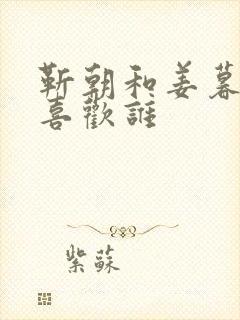 靳朝和姜暮
喜歡誰
紫蘇